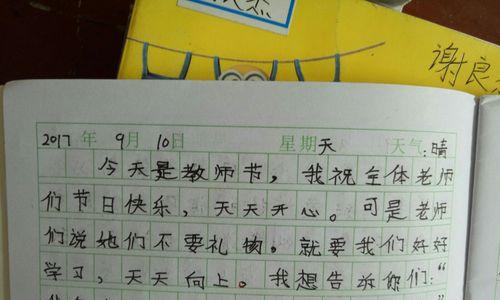 谢良
2017年 9月 10日 星期天 天气:晴
今天是教师节，我祝全体老师
们节日快乐，天天开心。可是老师
们说她们不要礼物。就要我们好好
学习，天天向上。我想告诉你们：“